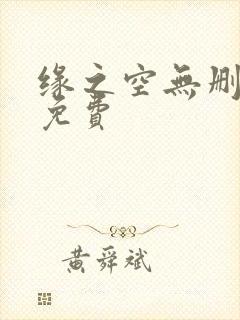 缘之空無删
免費
黄舜斌